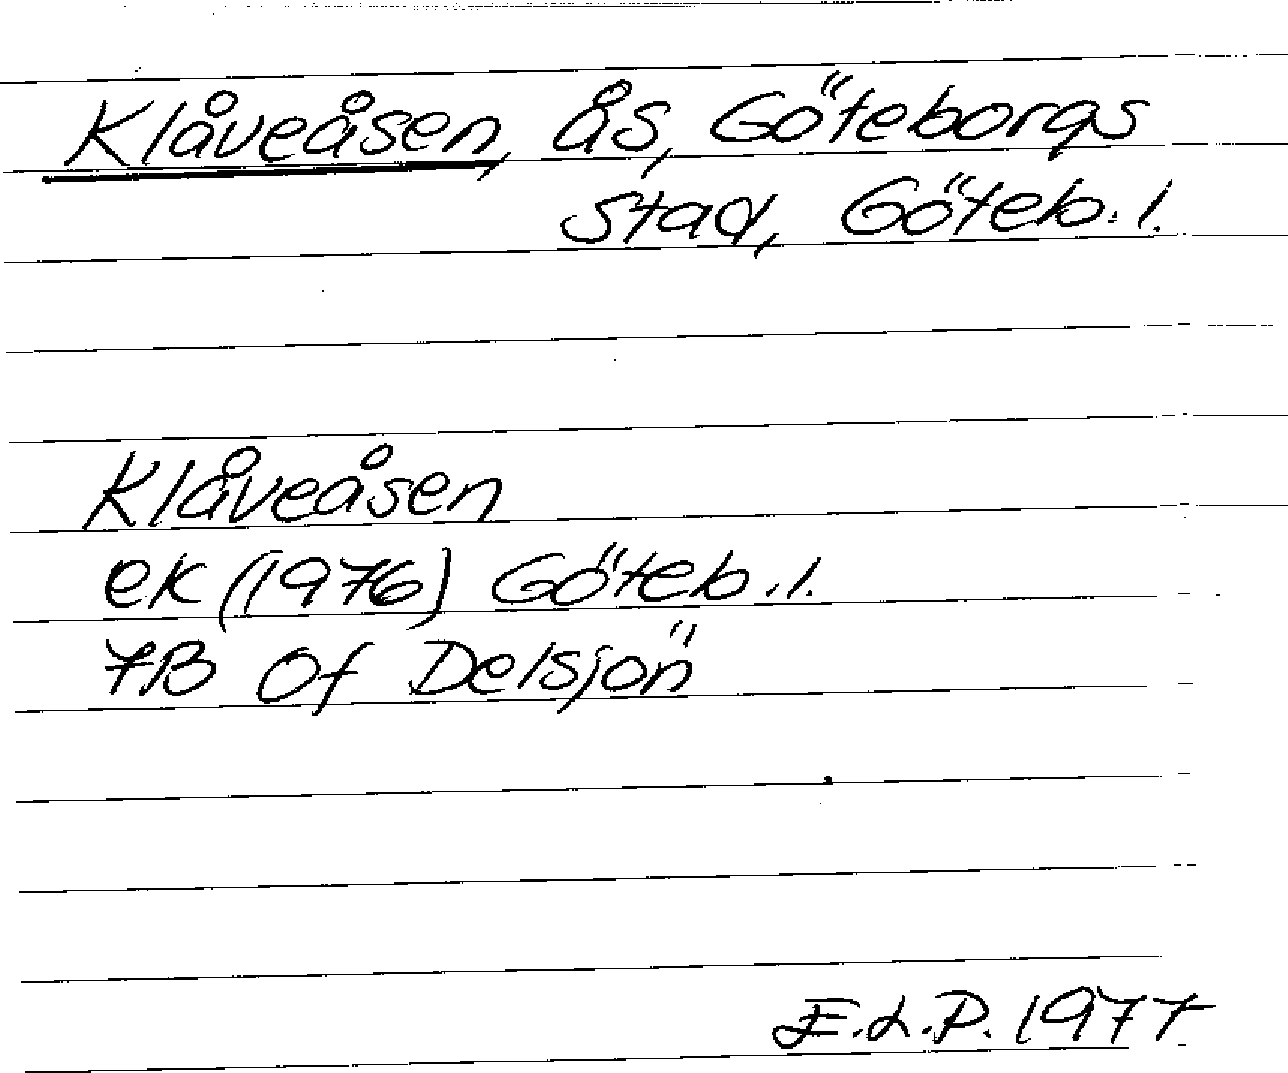 Klåveåsen, ås, Göteborgs
stad, Göteb. l.
Klåveåsen
ek (1976) Göteb. l.
7B 0f Delsjön
E.L.P. 1977